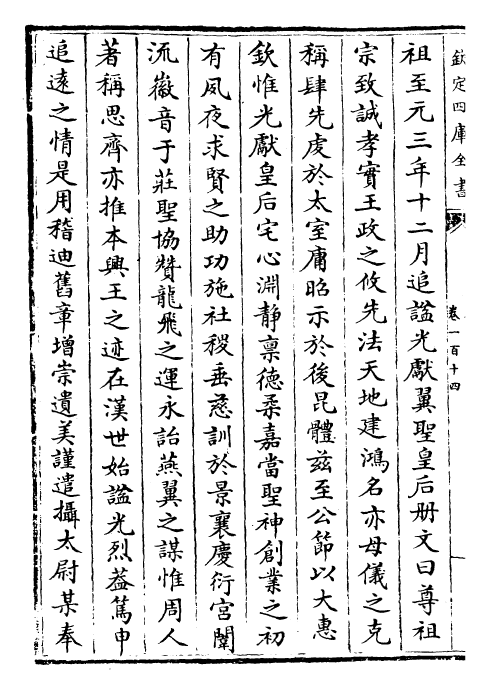 欽定四庫全書
卷一百十四
祖至元三年十二月追諡光獻翼聖皇后册文曰尊祖
宗致誠孝實王政之攸先法天地建鴻名亦母儀之克
稱肆先虔於太室庸昭示於後昆體兹至公節以大惠
欽惟光獻皇后宅心淵靜禀德柔嘉當聖神創業之初
有夙夜求賢之助功施社稷垂慈訓於景襄慶衍宮闈
流徽音于莊聖協贊龍飛之運永詒燕翼之謀惟周人
著稱思齊亦推本興王之迹在漢世始諡光烈葢篤申
追遠之情是用稽迪舊章增崇遺美謹遣攝太尉某奉